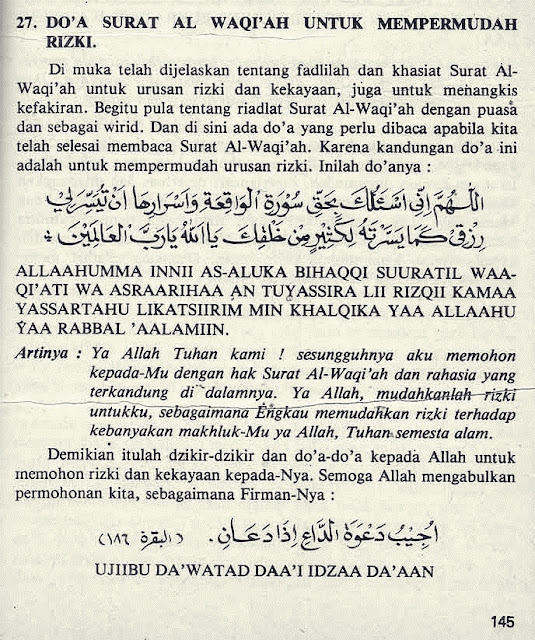 27. DO'A SURAT AL WAQI'AH UNTUK MEMPERMUDAH
RIZKI.
Di muka telah dijelaskan tentang fadlilah dan khasiat Surat Al-
Waqi'ah untuk urusan rizki dan kekayaan, juga untuk menangkis
kefakiran. Begitu pula tentang riadlat Surat Al-Waqi'ah dengan puasa
dan sebagai wirid. Dan di sini ada do'a yang perlu dibaca apabila kita
telah selesai membaca Surat Al-Waqi'ah. Karena kandungan do'a ini
adalah untuk mempermudah urusan rizki. Inilah do'anya :
اَللّٰهُمَّ اِنِّى اَسْئَلُكَ بِحَقِّ سُوْرَةِ الْوَاقِعَةِ وَاَسْرَارِهَا اَنْ تُيَسِّرَلِيْ
رِزْقِيْ كَمَا يَسَّرْتَهُ لِكَثِيْرٍ مِنْ خَلْقِكَ يَا اَللهُ يَارَبَّ الْعَالَمِيْنَ
ALLAAHUMMA INNII AS-ALUKA BIHAQQI SUURATIL WAA-
QI'ATI WA ASRAARIHAA AN TUYASSIRA LII RIZQII KAMAA
YASSARTAHU LIKATSIIRIM MIN KHALQIKA YAA ALLAAHU
YAA RABBAL 'AALAMIIN.
Artinya : Ya Allah Tuhan kami ! sesungguhnya aku memohon
kepada-Mu dengan hak Surat Al-Waqi'ah dan rahasia yang
terkandung di dalamnya. Ya Allah, mudahkanlah rizki
untukku, sebagaimana Engkau memudahkan rizki terhadap
kebanyakan makhluk-Mu ya Allah, Tuhan semesta alam.
Demikian itulah dzikir-dzikir dan do'a-do'a kepada Allah untuk
memohon rizki dan kekayaan kepada-Nya. Semoga Allah mengabulkan
permohonan kita, sebagaimana Firman-Nya :
اُجِيْبُ دَعْوَةَ الدَّاعِ اِذَا دَعَانِ. (البقرة ١٨٦)
UJIIBU DA'WATAD DAA'I IDZAA DA'AAN
145